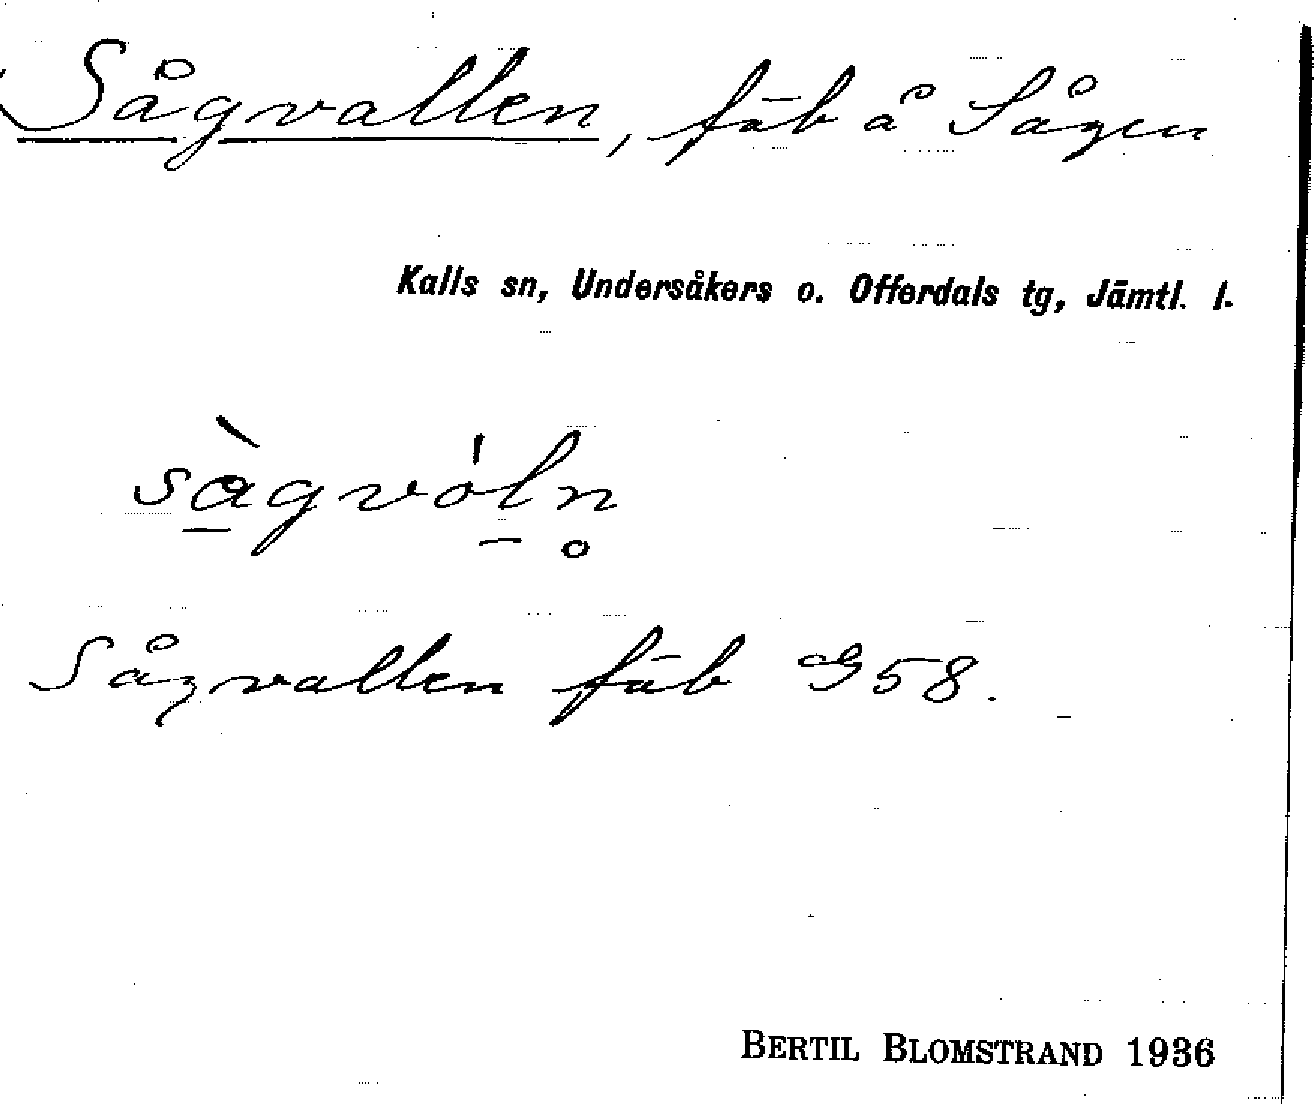 Sågvallen, fäb å Sågen
Kalls sn, Undersåkers o. Offerdals tg, Jämtl. l.
sàgvóln̥
Sågvallen fäb G58.
BERTIL BLOMSTRAND 1936